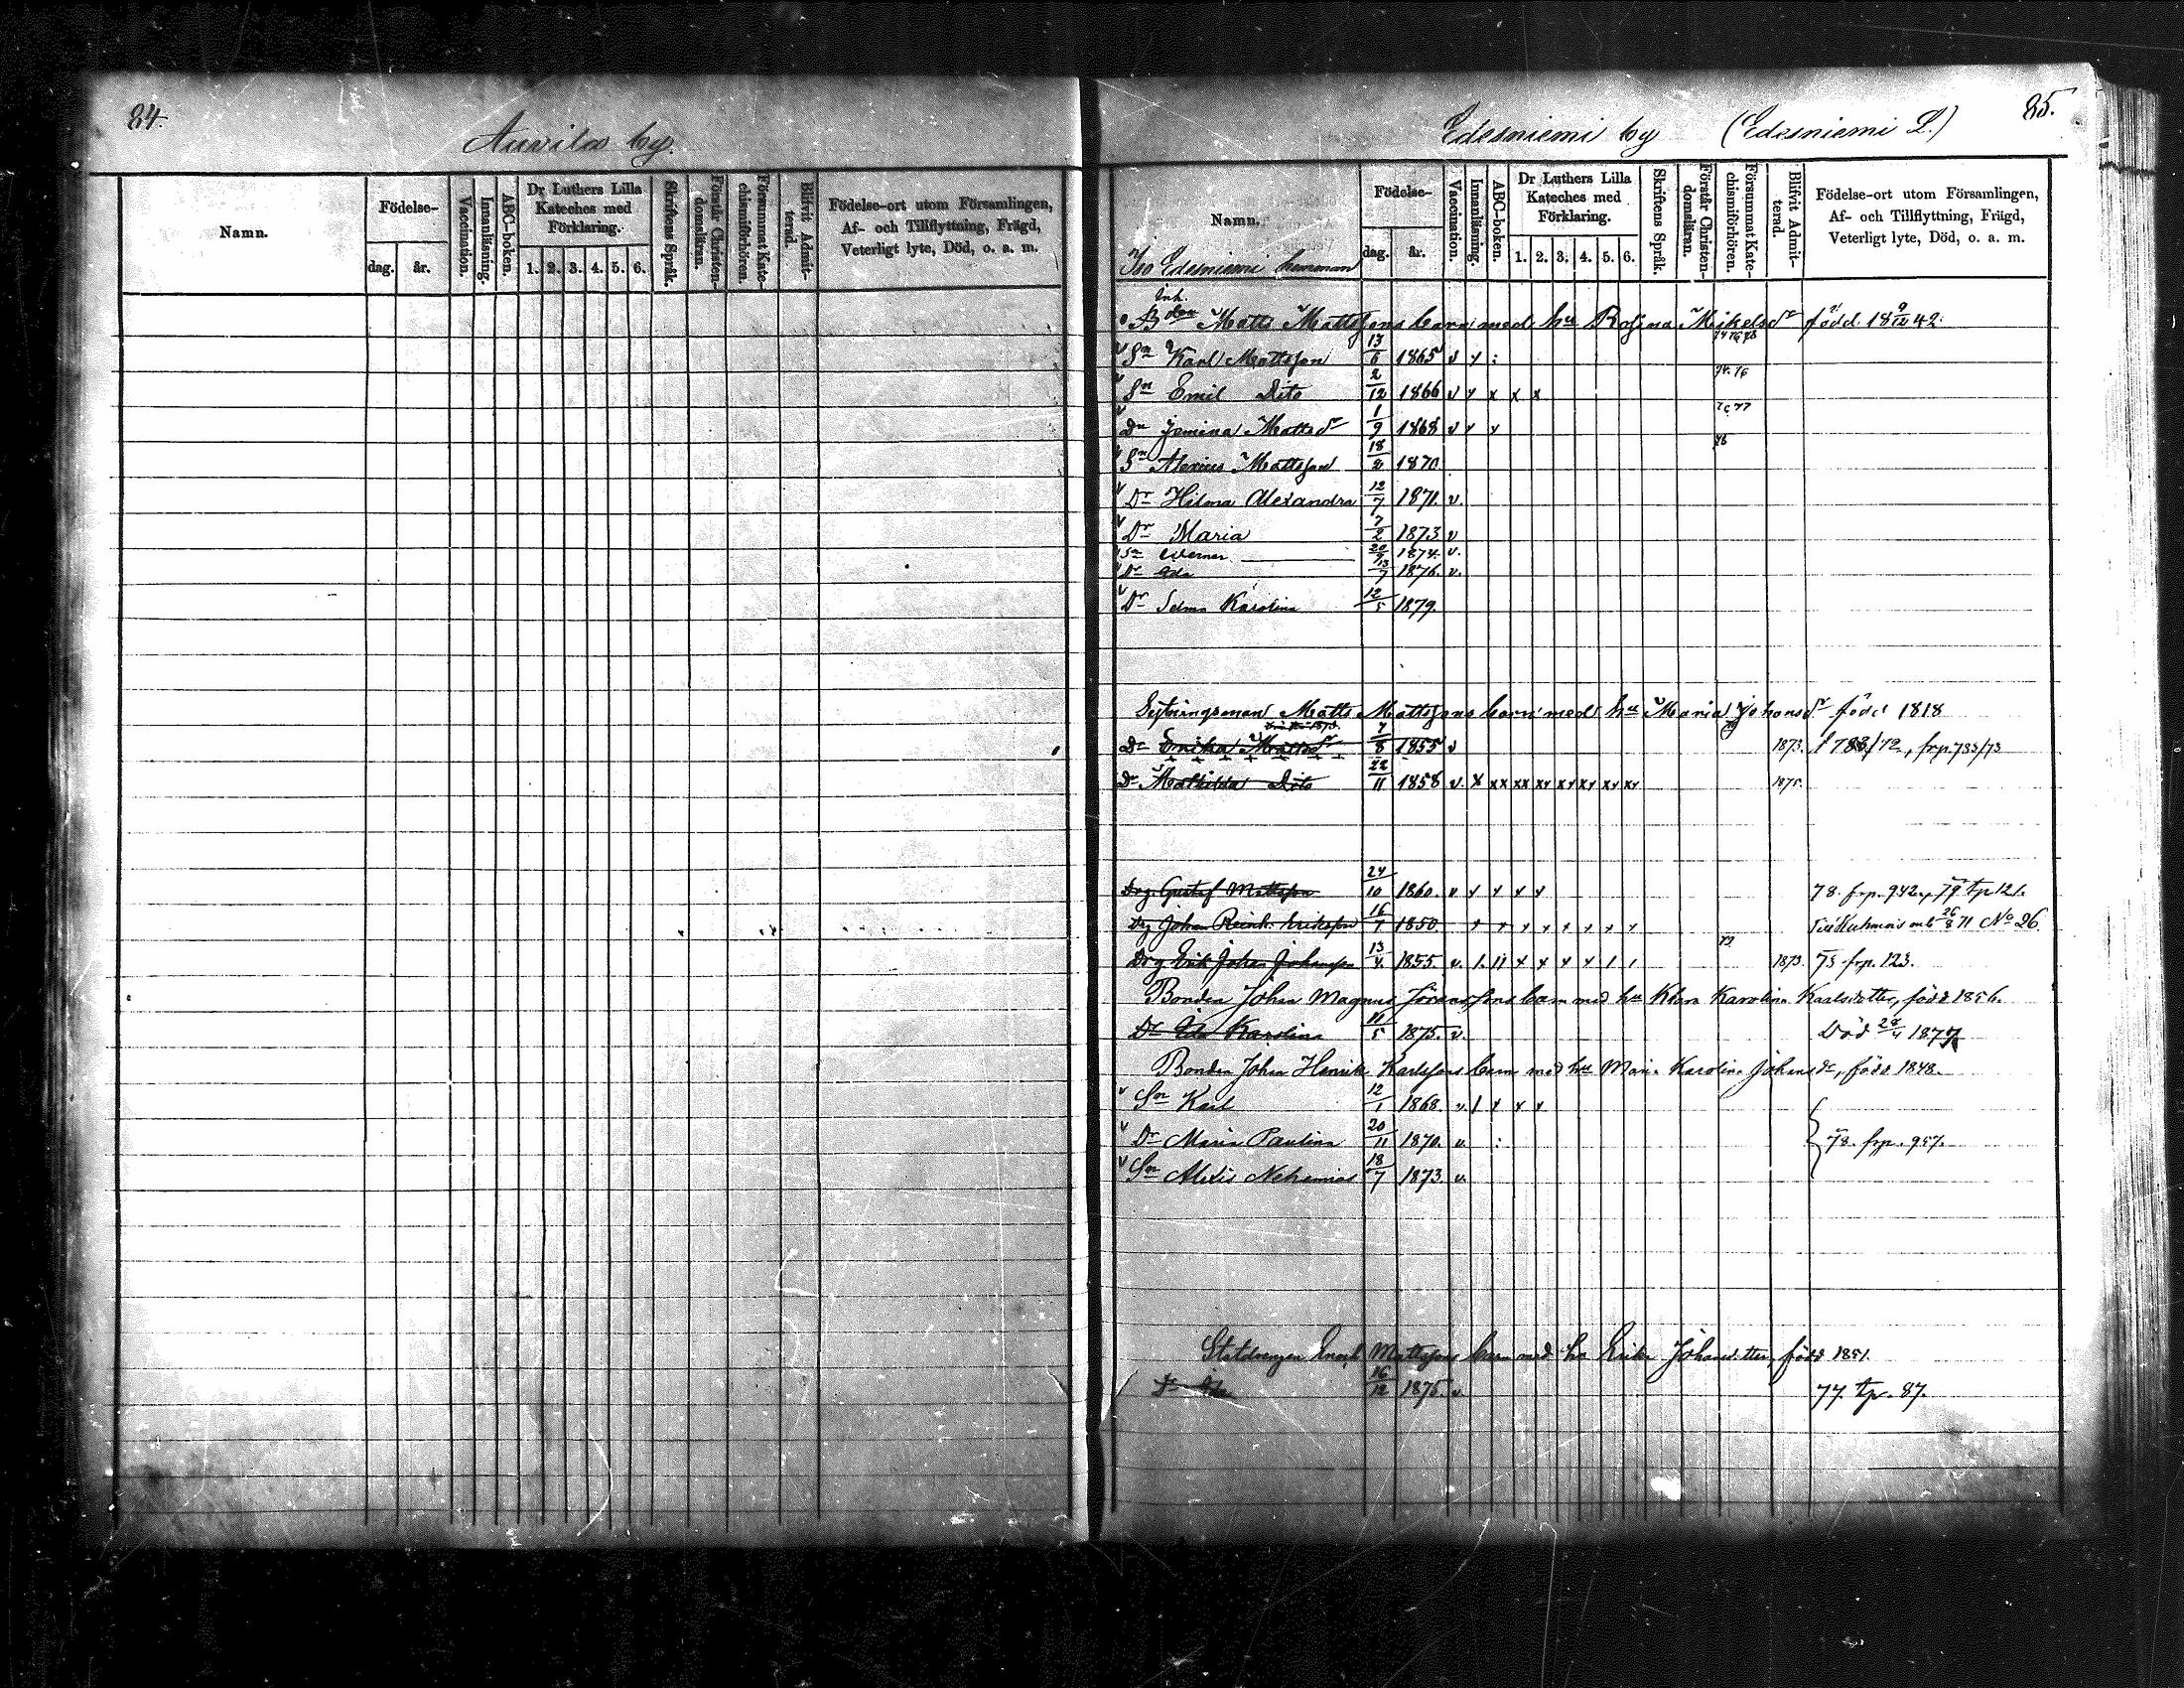 84.
Auvila by.
Namn.
Födelse-
dag. år.
Vaccination.
Innanläsning.
ABC-boken.
Dr Luthers Lilla Kateches med Förklaring.
1. 2. 3. 4. 5. 6.
Skriftens Språk.
Förstår Christen-domsläran.
Försummat Kate-chismiförhören.
Blifvit Admit-terad.
Födelse-ort utom Församlingen,
Af- och Tillflyttning, Frägd,
Veterligt lyte, Död, o. a. m.
85.
Edesniemi by (Edesniemi L.)
Namn.
Födelse-
dag. år.
Vaccination.
Innanläsning.
ABC-boken.
Dr Luthers Lilla Kateches med Förklaring.
1. 2. 3. 4. 5. 6.
Skriftens Språk.
Förstår Christen-domsläran.
Försummat Kate-chismiförhören.
Blifvit Admit-terad.
Födelse-ort utom Församlingen,
Af- och Tillflyttning, Frägd,
Veterligt lyte, Död, o. a. m.
Iso Edesniemi hemman
Inh.
Matts Mattssons barn med hu Rosina Mikelsdr född 18 9/12 42.
74 76 78
Sn Karl Mattsson 13/6 1865 v x :
74. 76
Sn Emil Dito 2/12 1866 v x x x x
76 77
Dr Jemina Mattsdr 1/9 1868 v x x
78
Sn Alexius Mattsson 18/2 1870
Dr Hilma Alexandra 12/7 1871. v.
Dr Maria 7/2 1873 v
Sn Werner 20/9 1874. v.
Dr Ada 13/7 1876. v.
Dr Selma Karolina 12/5 1879.
Sytningsman Matts Mattssons barn med hu Maria Johansdr född 1818
Dr Erika Mattsdr 7/8 1855 v 1873. f 783/72, frp. 733/73
Dr Mathilda Dito 22/11 1858 v. x xx xx xx xx xx xx xx 1875.
Drg Gustaf Mattsson 24/10 1860. v x x x x 78. frp. 942., 79 tp 121.
Drg Johan Reinh. Eriksson 16/7 1850. x x x x x x x x 26/8 71 No 26.
Drg Erik Johan Johansson 13/4 1855. v. 1. 11 x x x x 1 1 1873. 75 frp. 123.
Bonden Johan Magnus barn med hu Klara Karolina Karlsdotter, född 1856.
Dr Ida Karolina 11/5 1875. v. Död 28/4 1877
Bonden Johan Henrik Karlssons barn med hu Maria Karolina Johansdr, född 1848.
Sn Karl 12/1 1868. v. 1 x x x
Dr Maria Paulina 20/11 1870. v. : 78. frp. 957.
Sn Alexis Nehemias 18/7 1873 v.
Statdrengen Enoch Mattssons barn med hu Erika Johansdotter, född 1851.
Dr Ida 16/12 1875. v. 77. tp. 87.